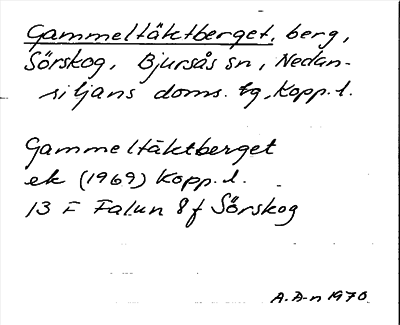 Gammeltäktberget, berg,
Sörskog, Bjursås sn, Nedan-
siljans doms. tg, Kopp. l.
Gammeltäktberget
ek (1969) Kopp. l.
13 F Falun 8 f Sörskog
A. A-n 1970